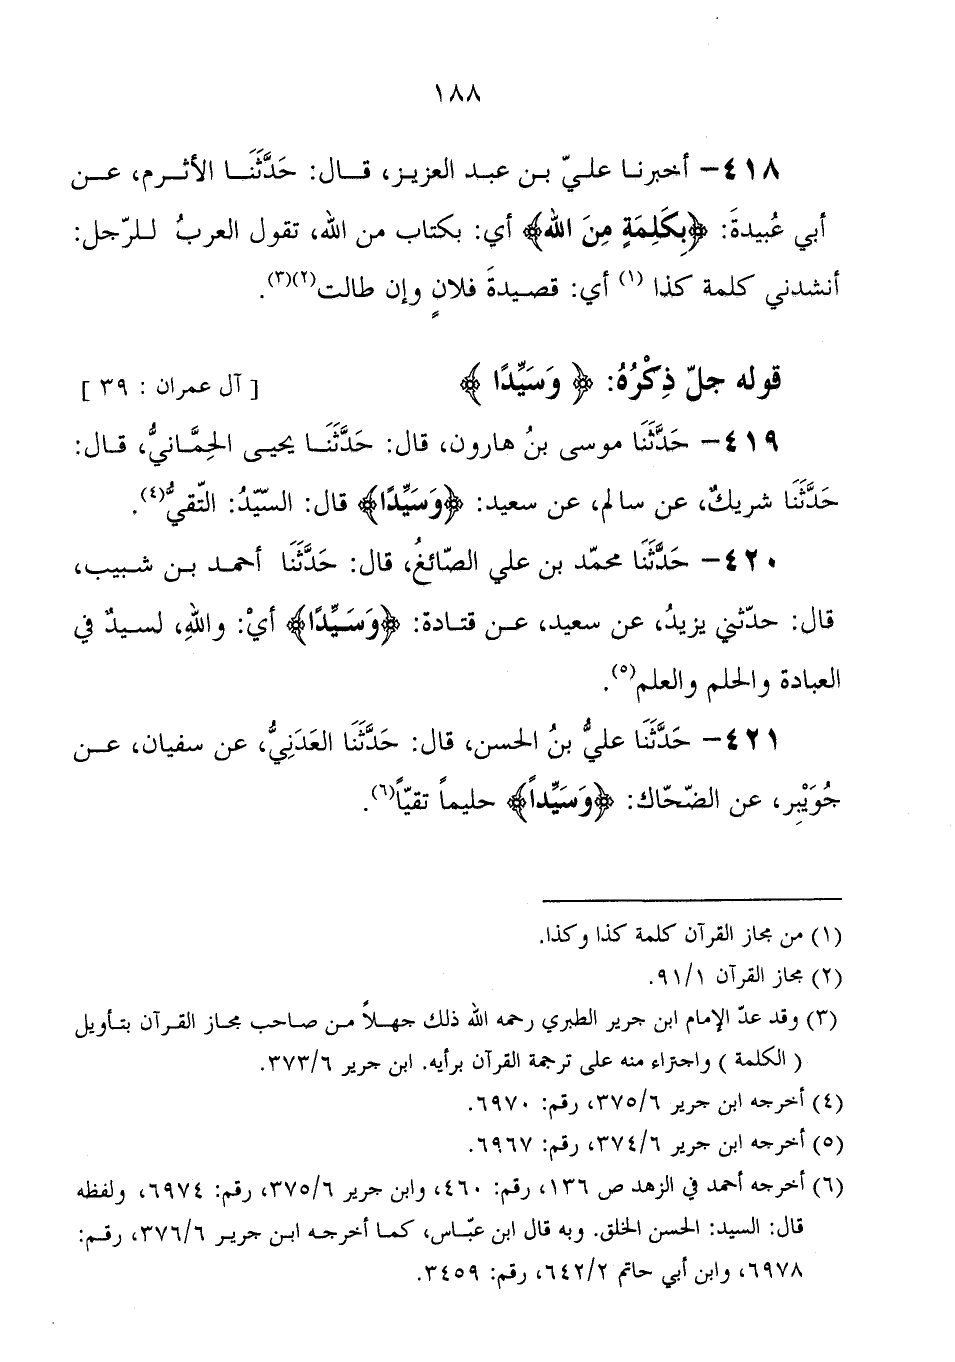 ١٨٨
٤١٨- أخبرنا عليّ بـن عبـد العزيـز، قـال: حَدَّثَنَـا الأثـرم، عـن
أبي عُبيدةَ: ﴿بِكَلِمَةٍ مِنَ الله﴾ أي: بكتاب من الله، تقول العربُ للـرّجل:
أنشدني كلمة كذا (١) أي: قصيدةَ فلانٍ وإن طالت(٢)(٣).
قوله جلّ ذِكْرُهُ: ﴿ وَسَيِّدًا ﴾ [ آل عمران : ٣٩ ]
٤١٩- حَدَّثَنَا موسى بنُ هارون، قال: حَدَّثَنَـا يحيـى الحِمَّـانيُّ، قـال:
حَدَّثَنَا شريكٌ، عن سالم، عن سعيد: ﴿وَسَيِّدًا﴾ قال: السيّدُ: التّقيُّ(٤).
٤٢٠- حَدَّثَنَا محمّد بن علي الصّائغُ، قال: حَدَّثَنَا أحمـد بـن شـبيب،
قال: حدّثني يزيدُ، عن سعيد، عـن قتـادة: ﴿وَسَـيِّدًا﴾ أيْ: واللهِ، لسيـدٌ في
العبادة والحلم والعلم(٥).
٤٢١- حَدَّثَنَا عليُّ بنُ الحسن، قال: حَدَّثَنَا العَدَنِيُّ، عن سفيان، عـن
جُوَيْبِر، عن الضّحّاك: ﴿وَسَيِّداً﴾ حليماً تقيّاً(٦).
(١) من مجاز القرآن كلمة كذا وكذا.
(٢) مجاز القرآن ٩١/١.
(٣) وقد عدّ الإمام ابن جرير الطبري رحمه الله ذلك جهـلاً مـن صـاحب مجـاز القـرآن بتـأويل
( الكلمة ) واجتراء منه على ترجمة القرآن برأيه. ابن جرير ٣٧٣/٦.
(٤) أخرجه ابن جرير ٣٧٥/٦، رقم: ٦٩٧٠.
(٥) أخرجه ابن جرير ٣٧٤/٦، رقم: ٦٩٦٧.
(٦) أخرجه أحمد في الزهد ص ١٣٦، رقم: ٤٦٠، وابن جرير ٣٧٥/٦، رقم: ٦٩٧٤، ولفظه
قال: السيد: الحسن الخلق. وبه قال ابن عبّـاس، كمـا أخرجـه ابـن جريـر ٣٧٦/٦، رقـم:
٦٩٧٨، وابن أبي حاتم ٦٤٢/٢، رقم: ٣٤٥٩.